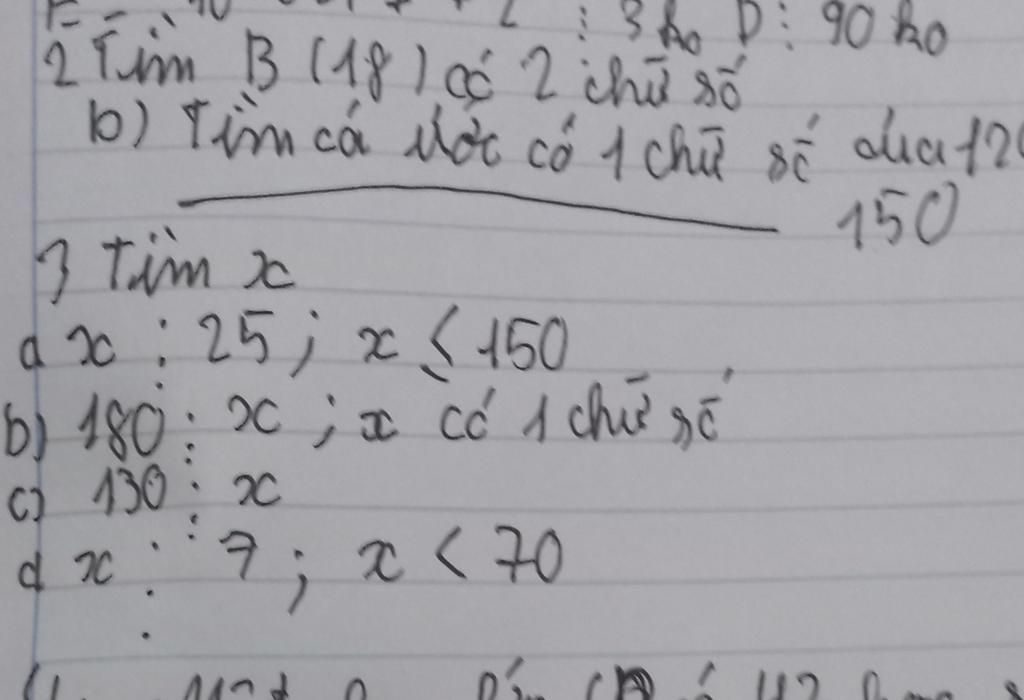 ⋮ 3 ko D ⋮ 90 ko
2 Tìm B (18) có 2 chữ số
b) Tìm cá ước có 1 chữ số của 120
150
3 Tìm x
a x ⋮ 25 ; x ≤ 150
b) 180 ⋮ x ; x có 1 chữ số
c) 130 ⋮ x
d x ⋮ 7 ; x < 70